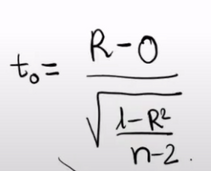 t₀ = (R - 0) / √((1 - R²) / (n - 2))